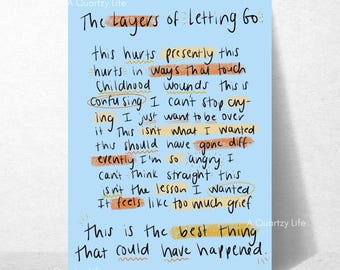 A Quartzy Life
The layers of letting Go
this hurts presently this
hurts in ways that touch
Childhood wounds this is
confusing I can't stop cry-
ing I just want to be over
it this isn't what I wanted
this should have gone diff-
erently I'm so angry I
cant think straight this
isn't the lesson I wanted
It feels like too much grief
A Quartzy Life
this is the best thing
that could have happened.